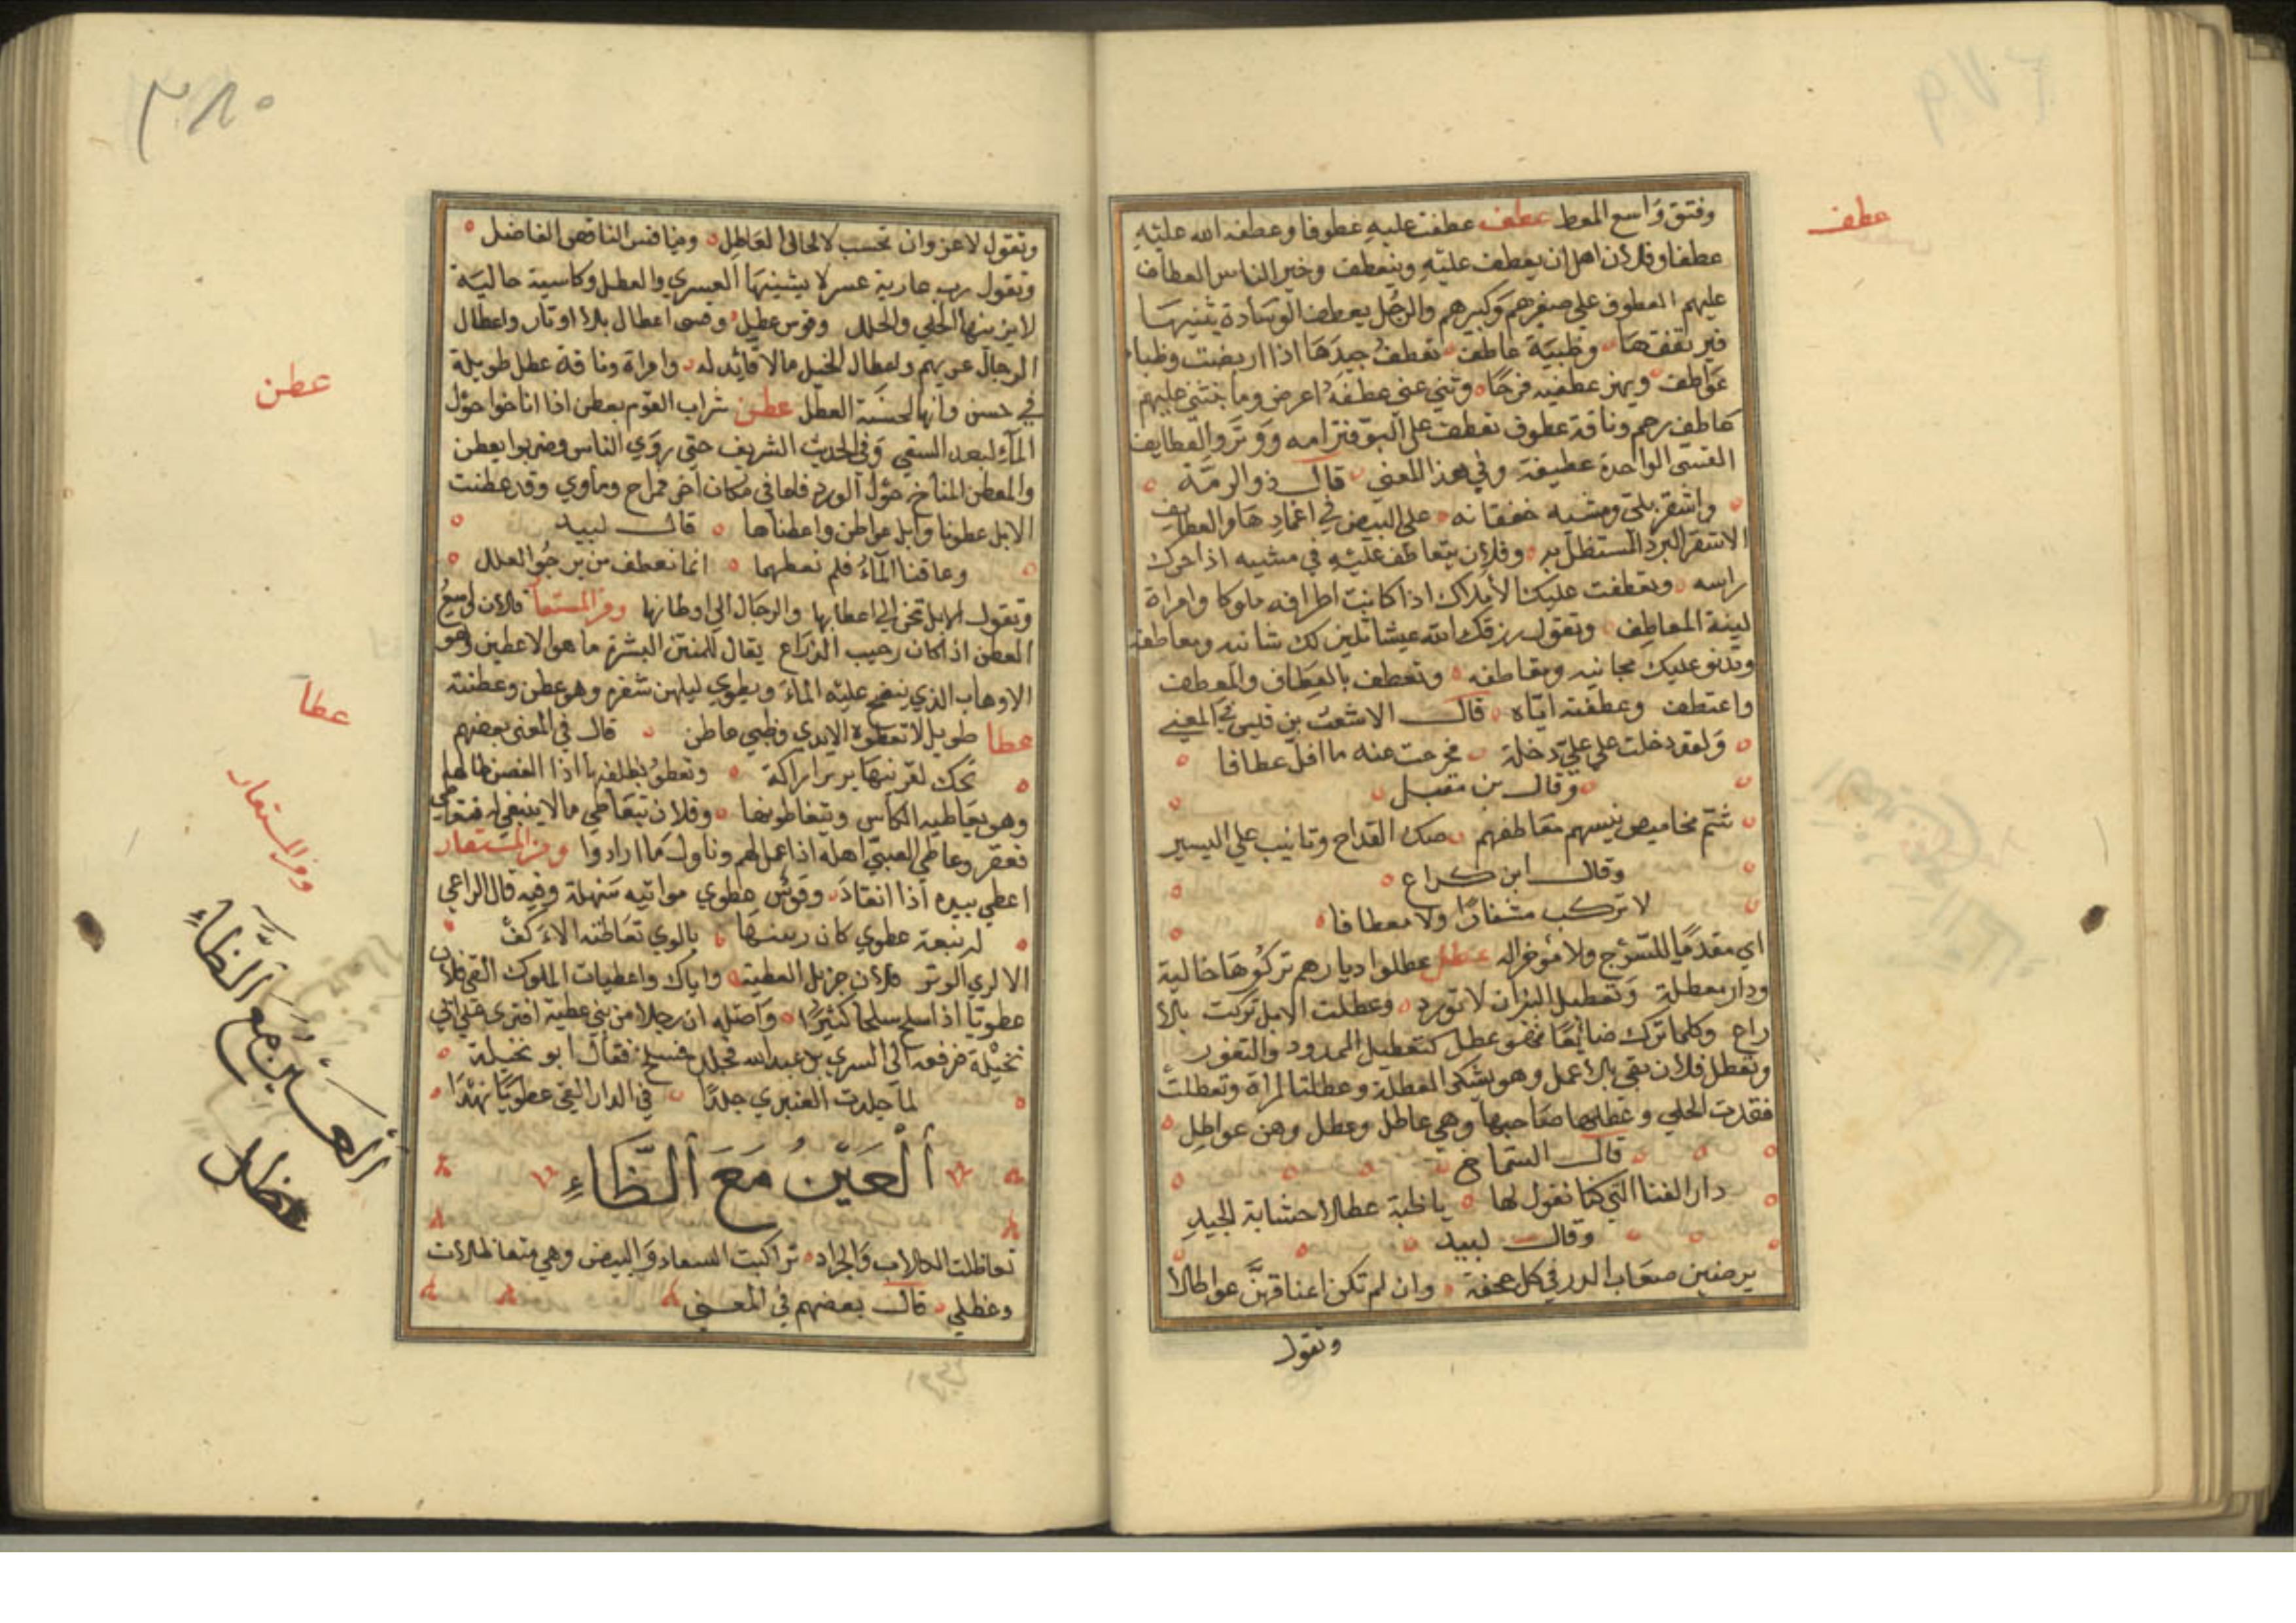 عطف
وفتق واسع المعط عطف عطفت عليه عطوفا وعطفه الله عليه
عطفا وفلان اهل ان يعطف عليه وينعطف وخير الناس العطاف
عليهم العطوف على صغيرهم وكبيرهم والرجل يعطف الوسادة يثنيها
فيرتفقها وظبية عاطف تعطف جيدها اذا اربضت وظباء
عواطف ويهز عطفيه فرحا وثنى عنى عطفه اعرض وما يثنى عليهم
عاطف رحم وناقة عطوف تعطف على البو فترامه ووتروا العطايف
القسى الواحدة عطيفة وفي هذا المعنى قال ذو الرمة
واشقر بلى وشيه خفقانه على البيض في اغمادها والعطايف
الاشقر البرد المستظل به وفلان يتعاطف عليه في مشيه اذا حرك
راسه وتعطفت عليك الأملاك اذا كانت اطرافه ملوكا وامراة
لينة المعاطف وتقول رزقك الله عيشا تلين لك مثانيه ومعاطفه
وتدنو عليك مجانيه ومقاطفه وتعطف بالعطاف والمعطف
واعتطف وعطفته اياه قال الاشعث بن قيس في المعنى
ولقد دخلت على علي دخلة فخرجت عنه ما اقل عطافا
وقال بن مقبل
شم مخاميص ينسيهم معاطفهم صك القداح وتانيب على اليسير
وقال ابن كراع
لا تركب مشفارا ولا معطافا
اي مقدما للسرج ولا مؤخرا له عطل عطلوا ديارهم تركوها خالية
ودار معطلة وتعطيل البئران لا تورد وعطلت الابل تركت بلا
راع وكلما ترك ضايعا فهو عطل كتعطيل الحدود والثغور
وتعطل فلان بقي بلا عمل وهو يشكى العطلة وعطلت المراة وتعطلت
فقدت الحلي وعطلها صاحبها وهي عاطل وعطل وهن عواطل
قال الشماخ
دار الفتاة التي كنا نقول لها يا ظبية عطلا حسانة الجيد
وقال لبيد
يرضين صعاب الدر في كل حجة وان لم تكن اعناقهن عواطلا
وتقول
٣٨٠
وتقول لا عز وان تحسب لا لحالى العاطل وينافس الناقص الفاضل
وتقول رب عارية عسر لا يشينها العسري والعطل وكاسية حالية
لا يزينها الحلي والحلل وقوس عطيل وقسى اعطال بلا اوتار واعطال
الرجال عزيهم واعطال الخيل مالا قايد له وامراة وناقة عطل طويلة
في حسن وانها لحسنة العطل عطن شراب القوم بعطن اذا اناخوا حول
الماء لبعد السقي وفي الحديث الشريف حتى روي الناس وضربوا بعطن
والمعطن المناخ حول الورد فاما في مكان اخر فمراح وماوي وقد عطنت
الابل عطونا وابل عواطن واعطناها قال لبيد
وعاقنا الماء فلم نعطهما انما نعطف من يرجو العلل
وتقول الابل تحن الي اعطانها والرجال الي اوطانها ومن المستعا فلان واسع
العطن اذا كان رحيب الذراع يقال للمنتن البشرة ما هو الا عطين وهو
الاوهاب الذي ينضح عليه الماء ويطوي ليلين شعره وهو عطن وعطنته
عطا طويل لا تعطوه الايدي وظبي عاطن قال في المعنى بعضهم
تحك لقرنيها برير اراكة وتعطو بظلفيها اذا الغصن طالها
وهو يعاطيه الكاس ويتعاطونها وفلان يتعاطى ما لا ينبغي له فتعاطى
فعقر وعاطي الصبي اهله اذا عمل لهم وناول ما ارادوا ومن المستعار
اعطي بيده اذا انقاد وقوس عطوي مواتيه سهلة وفيه قال الراعي
له نبعة عطوي كان رنينها بالوي تعاطته الاكف
الا لري الوتر فلان جزيل العطية واياك واعطيات الملوك القى فلان
عطويا اذا سلح سلحا كثيرا واصله ان رجلا من بني عطية افترى على ابي
نخيلة فرفعه الى السري بن عبد الله فجلده فسلح فقال ابو نخيلة
لما جلدت العنبري جلدا في الدار القى عطويا نهدا
العين مع الظاء
تعاظلت الكلاب والجراد تراكبت السفاد والبيض وهي متعاظلات
وعظلي قال بعضهم في المعنى
عطن
عطا
ومن المستعار
العين مع الظاء
عظل